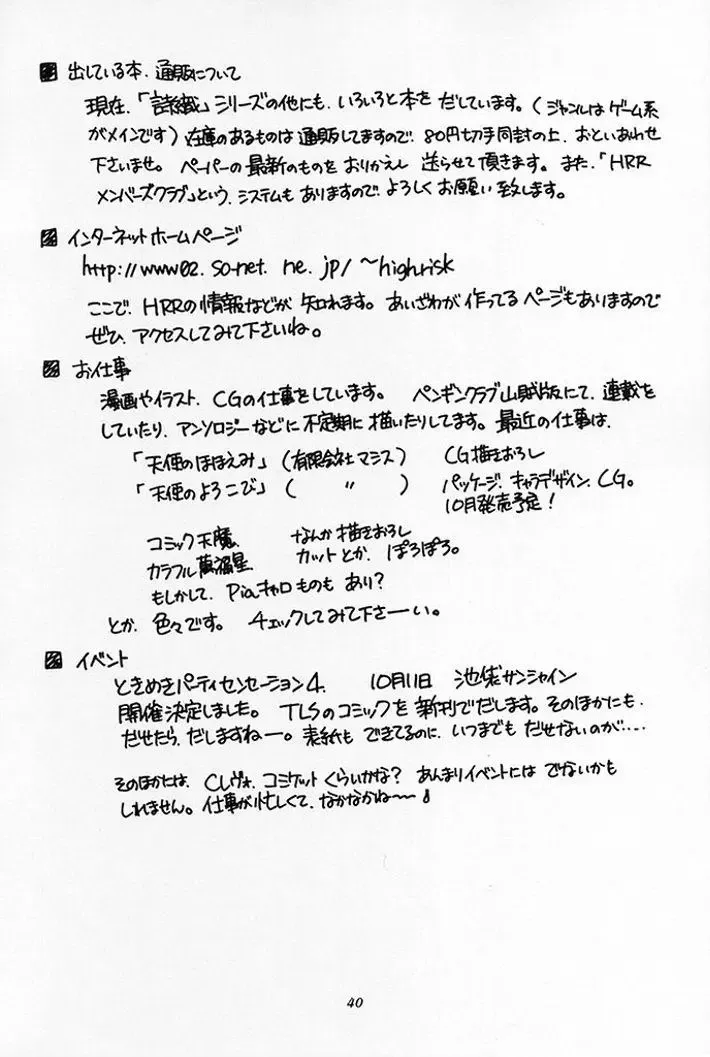 出している本、通販について
現在、「詰織」シリーズの他にも、いろいろと本を だしています。(ジャンルはゲーム系
がメインです) 在庫のあるものは 通販してますので、80円切手同封の上、おといあわせ
下さいませ。 ペーパーの最新のものを おりかえし 送らせて頂きます。また、「HRR
メンバーズクラブ」という、システムも ありますので、よろしく お願い 致します。
インターネットホームページ
http://www02.so-net.ne.jp/~highrisk
ここで、HRRの情報などが 知れます。あいざわが 作ってる ページもありますので
ぜひ、アクセスしてみて下さいね。
お仕事
漫画やイラスト、CGの仕事をしています。 ペンギンクラブ山賊版にて、連載を
していたり、アンソロジーなどに 不定期に 描いたりしてます。最近の仕事は、
「天使のほほえみ」(有限会社マシス) CG描きおろし
「天使のよろこび」( 〃 ) パッケージ、キャラデザイン、CG。
10月発売予定!
コミック天魔、 なんか描きおろし
カラフル萬福星 カットとか、ぽろぽろ。
もしかして、Piaキャロものも あり?
とか、色々です。 チェックしてみて下さーい。
イベント
ときめきパーティセンセーション4、 10月11日 池袋サンシャイン
開催決定しました。 TLSのコミックを 新刊でだします。そのほかにも、
だせたら、だしますねー。表紙も できてるのに、いつまでも だせないのが‥‥
そのほかには、Cレヴォ、コミケット くらいかな? あんまりイベントには でないかも
しれません。仕事が忙しくて、なかなかね〜〜♪
40